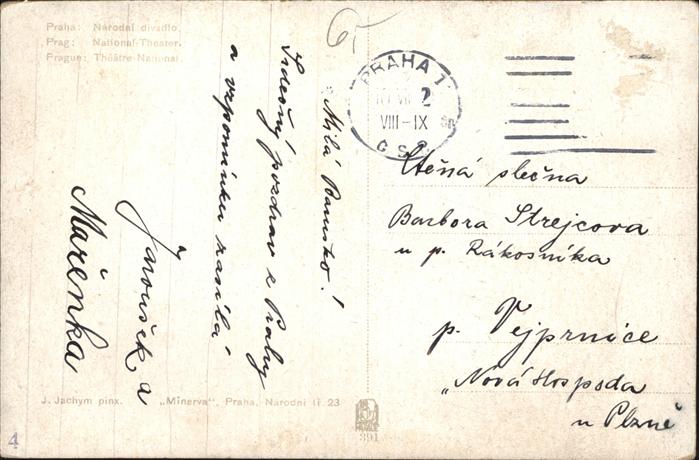 Praha: Národní divadlo.
Prag: National-Theater.
Prague: Théâtre-National.
6
PRAHA 7
VIII-IX
ČSR
Milá Barunko!
Srdečný pozdrav z Prahy
a vzpomínku zasílá
Jaroušek a
Mařenka
Ctěná slečna
Barbora Strejcova
u p. Rákosníka
p. Vejprnice
„Nová Hospoda
u Plzně
J. Jachym pinx. „Minerva", Praha, Národní tř. 23
391
4